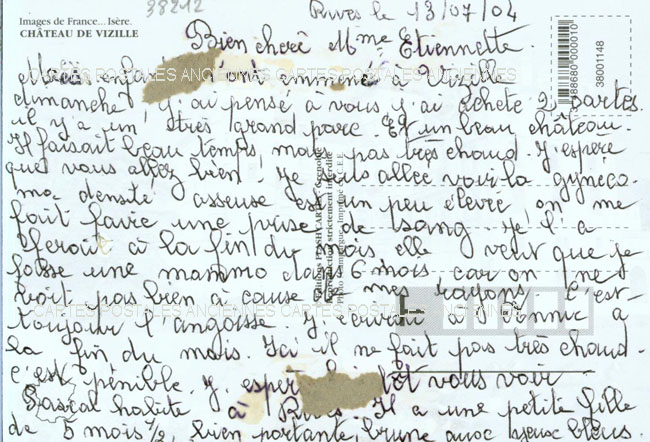 38212
Rives le 13/07/04
Images de France... Isère.
CHÂTEAU DE VIZILLE
Bien chere Mme Etiennette.
Mes enfants m'ont emmené à Vizille
dimanche j'ai pensé à vous j'ai acheté 2 cartes
il y a un très grand parc. Et un beau château.
Il faisait beau temps, mais pas très chaud. J'espère
que vous allez bien. Je suis allée voir la gynéco.
ma densité osseuse est un peu élevée on me
fait faire une prise de sang. Je l'a
ferait à la fin du mois elle veut que je
fasse une mammo dans 6 mois car on ne
voit pas bien à cause de mes rayons. C'est
toujour l'angoisse. J'écrirai à Annic à
la fin du mois. Ici il ne fait pas très chaud.
c'est pénible. J'espère vous voir
Pascal habite à Rives. Il a une petite fille
de 5 mois 1/2, bien portante, brune avec yeux bleus.
CARTES POSTALES ANCIENNES CARTES POSTALES ANCIENNES
CARTES POSTALES ANCIENNES CARTES POSTALES ANCIENNES
38001148